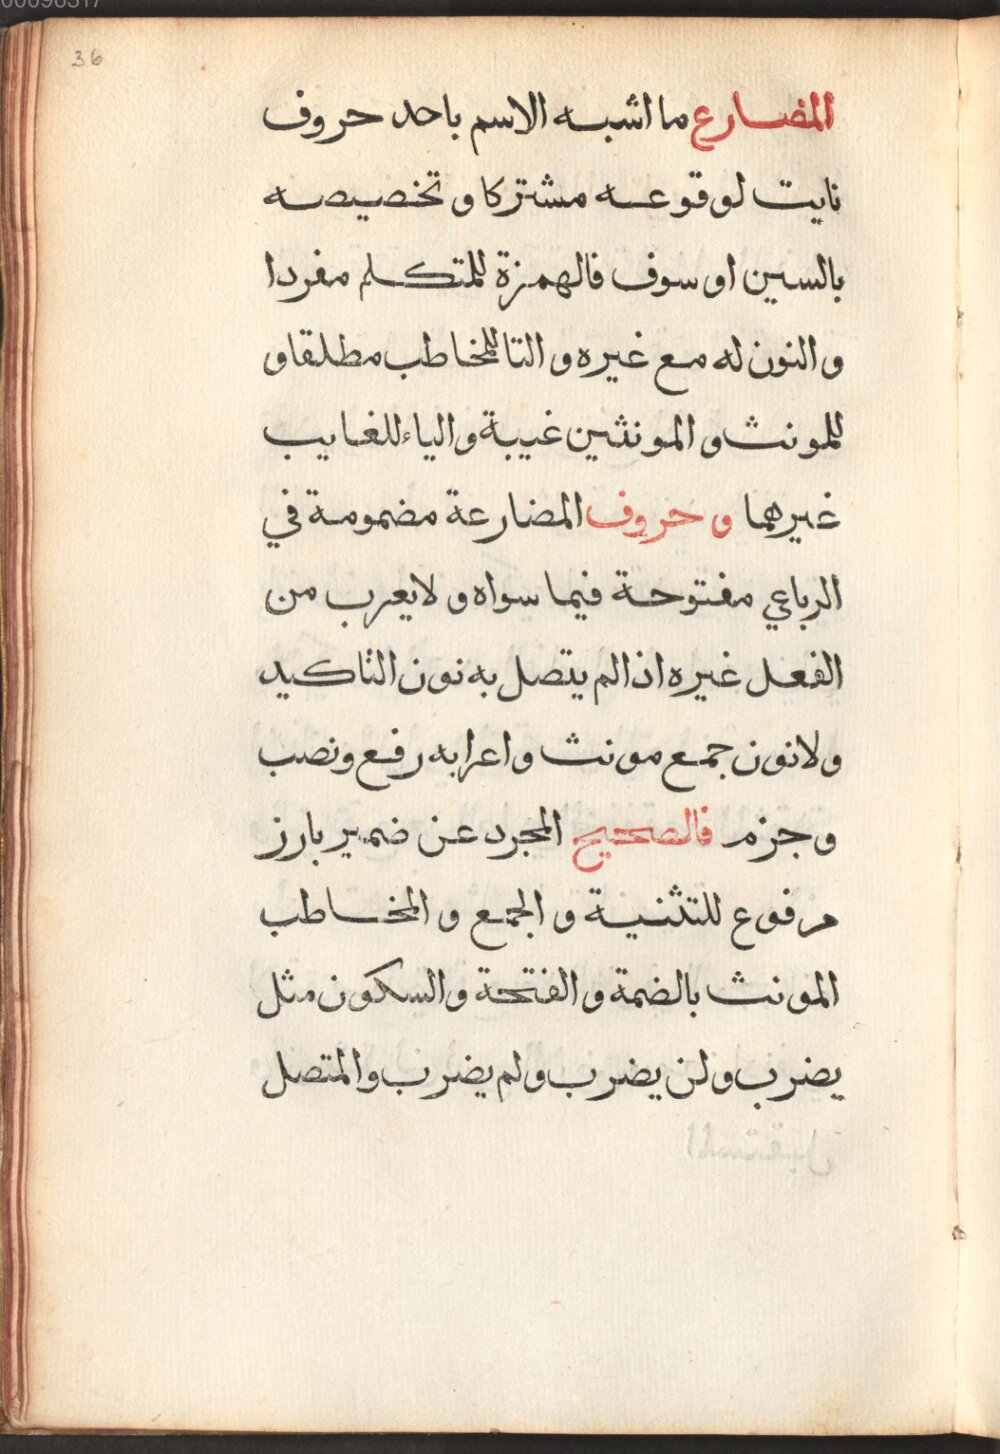 36
المضارع ما اشبه الاسم باحد حروف
نايت لوقوعه مشتركا وتخصيصه
بالسين او سوف فالهمزة للمتكلم مفردا
والنون له مع غيره والتا للمخاطب مطلقا و
للمونث والمونثين غيبة والياء للغايب
غيرهما وحروف المضارعة مضمومة في
الرباعي مفتوحة فيما سواه ولا يعرب من
الفعل غيره اذا لم يتصل به نون التاكيد
ولا نون جمع مونث واعرابه رفع ونصب
وجزم فالصحيح المجرد عن ضمير بارز
مرفوع للتثنية والجمع والمخاطب
المونث بالضمة والفتحة والسكون مثل
يضرب ولن يضرب ولم يضرب والمتصل